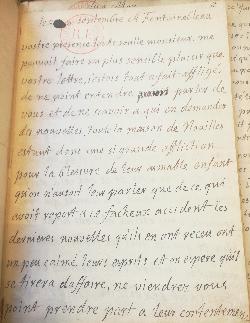 septembre a Fontainebleau
R.F.
vostre presence toute seulle monsieur, me
pouvoit faire un plus sensible plaisir que
vostre lettre, jestois tout a fait affligé
de ne point entendre parler de
vous et de ne savoir a qui en demander
des nouvelles, toute la maison de Noailles
estant dans une si grande affliction
pour la blessure de leur aimable enfant
qu'on n'ausoit leur parler que de ce qui
avoit raport a ce facheux accident les
dernieres nouvelles qu'ils en ont receu ont
un peu calmé leurs esprits et on espere qu'il
se tirera d'affaire, ne viendrez vous
point prendre part a leur contentement